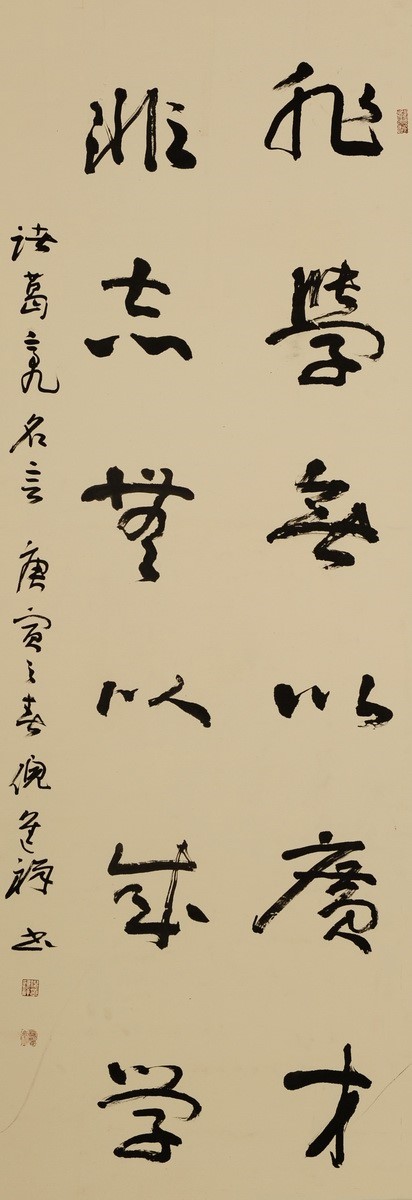 非學無以廣才
非志無以成学
诸葛亮名言 庚寅之春 倪进祥书